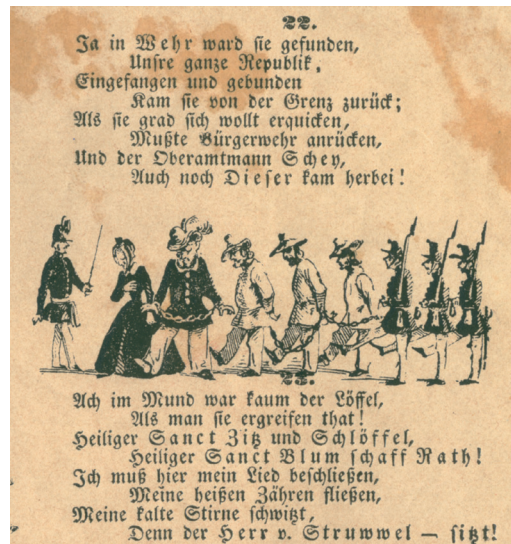 22.
Ja in Wehr ward sie gefunden,
Unsre ganze Republik,
Eingefangen und gebunden
Kam sie von der Grenz zurück;
Als sie grad sich wollt erquicken,
Mußte Bürgerwehr anrücken,
Und der Oberamtmann Schey,
Auch noch Dieser kam herbei!
23.
Ach im Mund war kaum der Löffel,
Als man sie ergreifen that!
Heiliger Sanct Zitz und Schlöffel,
Heiliger Sanct Blum schaff Rath!
Ich muß hier mein Lied beschließen,
Meine heißen Zähren fließen,
Meine kalte Stirne schwitzt,
Denn der Herr v. Struwwel — sitzt!